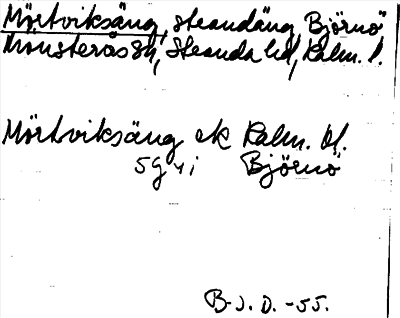 Mörtviksäng, strandäng, Björnö
Mönsterås sn, Stranda hd, Kalm. l.
Mörtviksäng ek Kalm. bl.
5G 4i Björnö
B-J. D. -55.